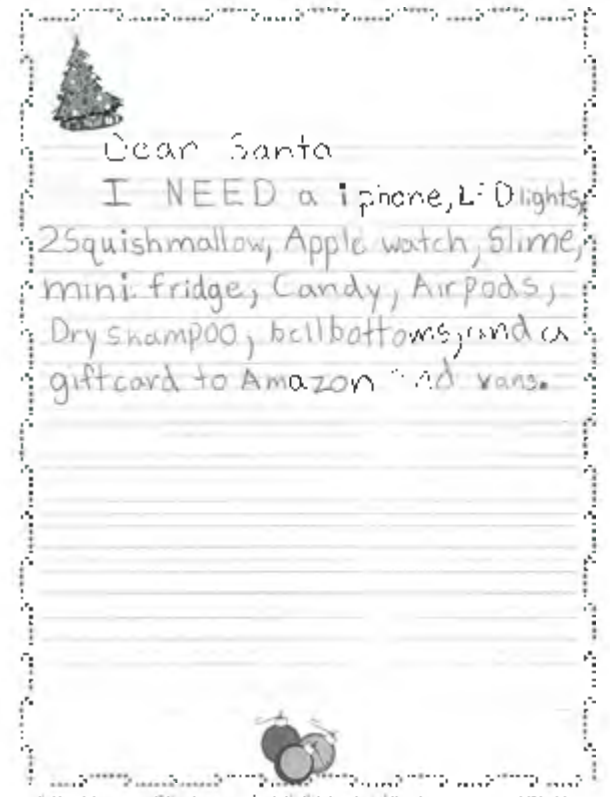 Dear Santa
I NEED a iphone, LED lights,
2 Squishmallow, Apple watch, Slime,
mini fridge, Candy, Airpods,
Dry shampoo, bellbottoms, and a
giftcard to Amazon and vans.